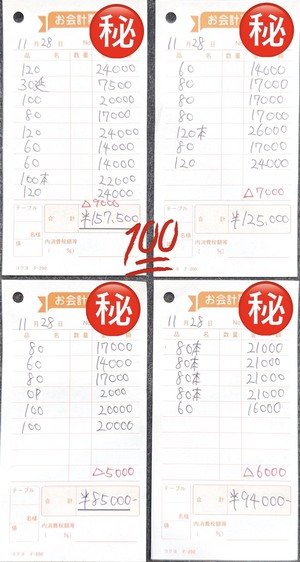 お会計
秘
11月28日 No
品名 数量
120 24000
30延 7500
100 20000
80 17000
120 24000
60 14000
60 14000
100本 22000
120 24000
△9000
テーブル 合計 ¥157,500
名様 内消費税額等
コクヨ テ-250
お会計
秘
11月28日 No
品名 数量
60 14000
80 17000
80 17000
80 17000
120本 26000
80 17000
120 24000
△7000
テーブル 合計 ¥125,000
名様 内消費税額等
コクヨ テ-250
100
お会計
秘
11月28日 No
品名 数量
80 17000
60 14000
80 17000
OP 2000
100 20000
100 20000
△5000
テーブル 合計 ¥85000-
名様 内消費税額等
コクヨ テ-250
お会計
秘
11月28日 No
品名 数量
80本 21000
80本 21000
80本 21000
80本 21000
60 16000
△6000
テーブル 合計 ¥94000-
名様 内消費税額等
コクヨ テ-250